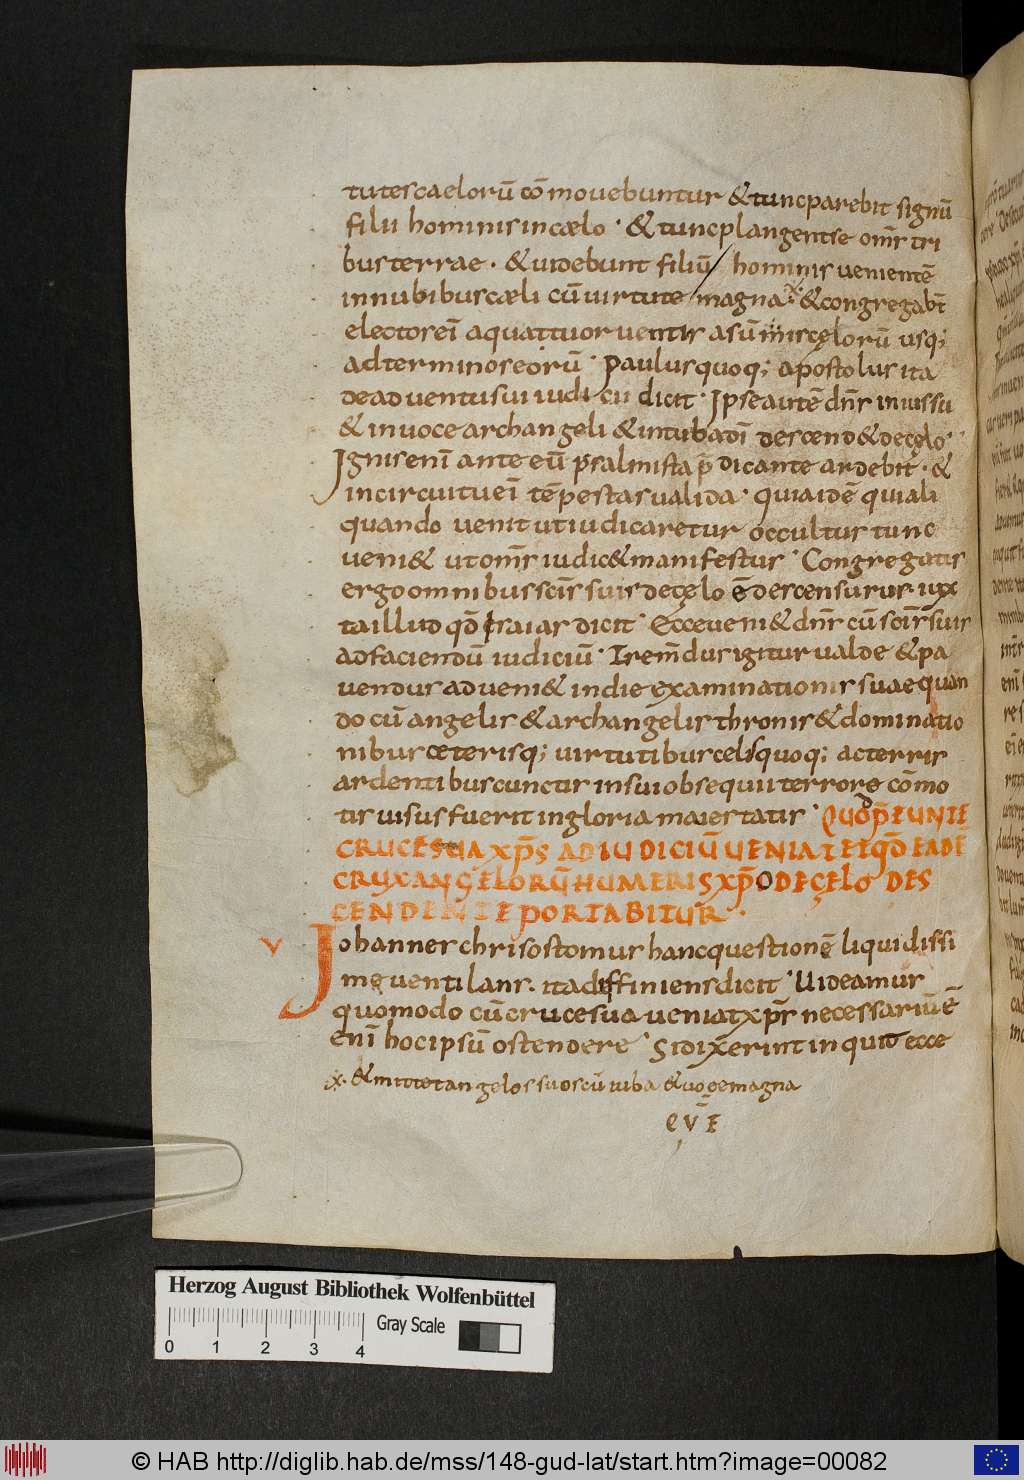 tutes caelorū cōmouebuntur & tunc parebit signū
filii hominis in caelo · & tunc plangent se om̄s tri
bus terrae · & uidebunt filiū hominis uenientē
in nubibus cæli cū uirtute magna · & congregabt̄
electos ei᷒ a quattuor uentis a sūmis cęlorū usq;
ad terminos eorū · Paulus quoq; apostolus ita
de aduentu sui iudicii dicit · Ipse autē dn̄s in iussu
& in uoce archangeli & in tuba dī descend& de cęlo ·
Ignis enī ante eū psalmista p̄dicante ardebit · &
in circuitu eī tēpestas ualida · quia idē qui ali
quando uenit ut iudicaretur occultus tunc
ueni& ut om̄s iudic& manifestus · Congregatis
ergo omnibus sc̄is suis de cęlo ē descensurus iux
ta illud qđ Isaias dicit · Ecce ueni& dn̄s cū sc̄is suis
ad faciendū iudiciū · Trem̄dus igitur ualde & pa
uendus adueni& in die examinationis suae quan
do cū angelis & archangelis thronis & dominatio
nibus ceterisq; uirtutibus celis quoq; ac terris
ardentibus cunctis in sui obsequii terrore cōmo
tis uisus fuerit in gloria maiestatis · QUOD P̄EUNTE
CRUCE SUA XP̄S AD IUDICIŪ UENIAT ET QĐ EADĒ
CRUX ANGELORŪ HUMERIS XP̄O DE CĘLO DES
CENDENTE PORTABITUR ·
V Johannes chrisostomus hanc questionē liquidissi
mę uentilans · ita diffiniens dicit · Uideamus
quomodo cū cruce sua ueniat xp̄s necessariū ē
enī hoc ipsū ostendere · Si dixerint inquid ecce
& mittet angelos suos cū tuba & uoce magna
Herzog August Bibliothek Wolfenbüttel
0 1 2 3 4
Gray Scale
© HAB http://diglib.hab.de/mss/148-gud-lat/start.htm?image=00082